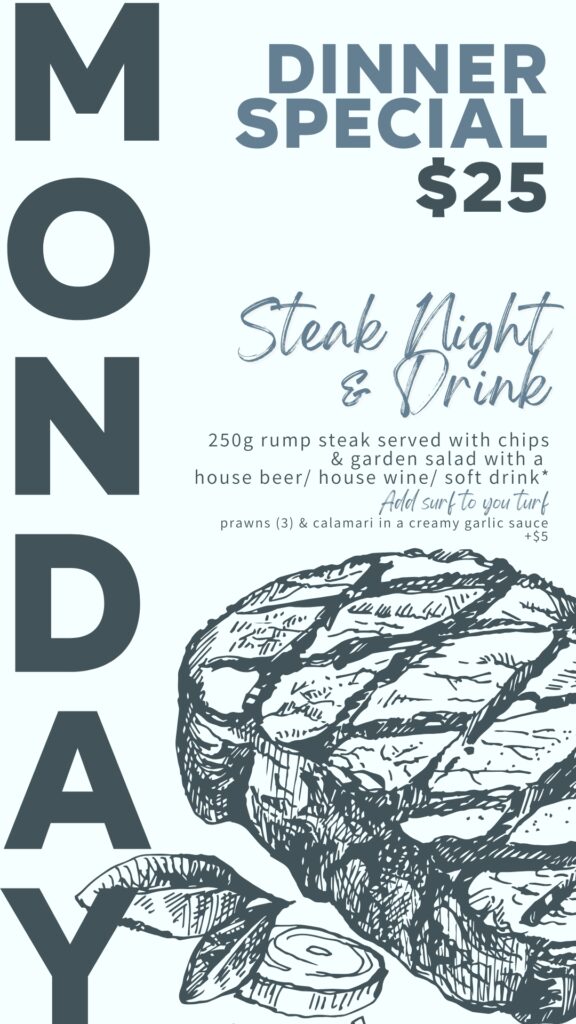 MONDAY
DINNER
SPECIAL
$25
Steak Night
& Drink
250g rump steak served with chips
& garden salad with a
house beer/ house wine/ soft drink*
Add surf to you turf
prawns (3) & calamari in a creamy garlic sauce
+$5